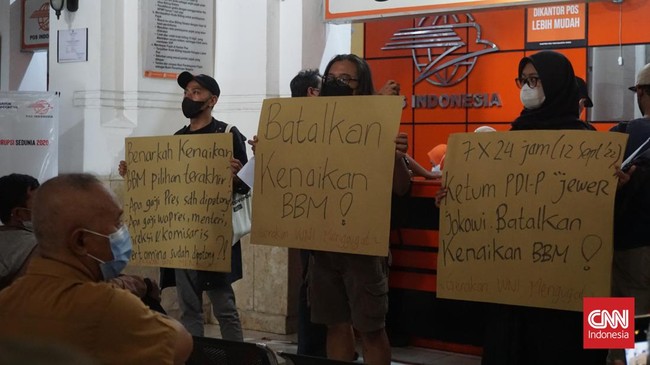 POS INDONESIA
DIKANTOR POS
LEBIH MUDAH
INDONESIA
RUPSI SEDUNIA 202
Benarkah Kenaikan
BBM pilihan terakhir
- Apa gaji Pres sdh dipotong
- Apa gaji wapres, menteri,
direksi & komisaris
Pertamina sudah dipotong ?!
Batalkan
Kenaikan
BBM !
7 X 24 jam (12 Sept '22)
Ketum PDI-P "jewer
Jokowi. Batalkan
Kenaikan BBM !
CNN
Indonesia